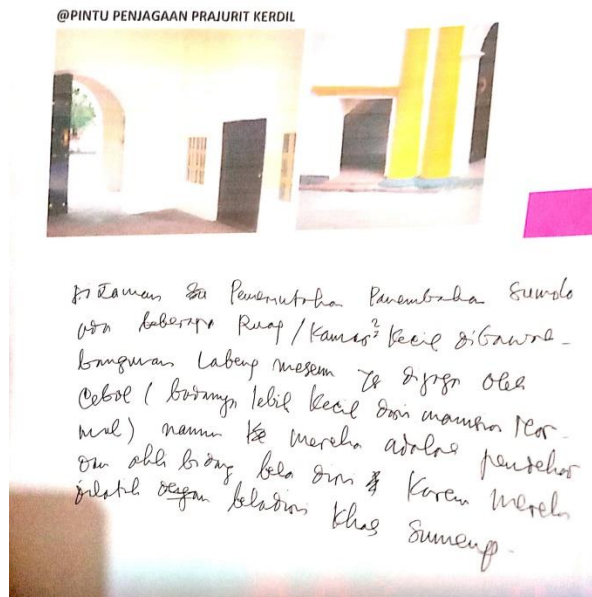 @PINTU PENJAGAAN PRAJURIT KERDIL
di zaman Pemerintahan Panembahan Sumolo
ada beberapa Ruag / Kamar² Kecil dibawah
bangunan Labeng mesem yg dijaga oleh
Cebol ( badannya lebih kecil dari manusia Nor-
mal ) namun mereka adalah pendekar
dan ahli bidang bela diri Karena mereka
dilatih dengan beladiri Khas Sumenep.